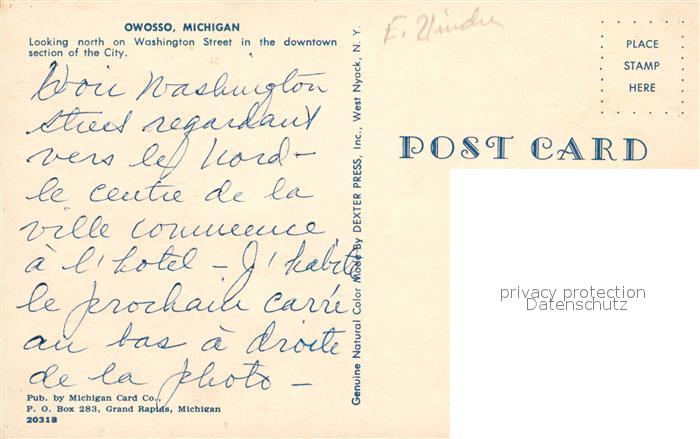 OWOSSO, MICHIGAN
Looking north on Washington Street in the downtown
section of the City.
Voir Washington
street regardant
vers le Nord –
le centre de la
ville commence
à l'hotel – J'habite
le prochain carré
au bas à droite
de la photo –
Pub. by Michigan Card Co.,
P. O. Box 283, Grand Rapids, Michigan
20318
Genuine Natural Color Made By DEXTER PRESS, Inc., West Nyack, N. Y.
E.
PLACE
STAMP
HERE
POST CARD
privacy protection
Datenschutz